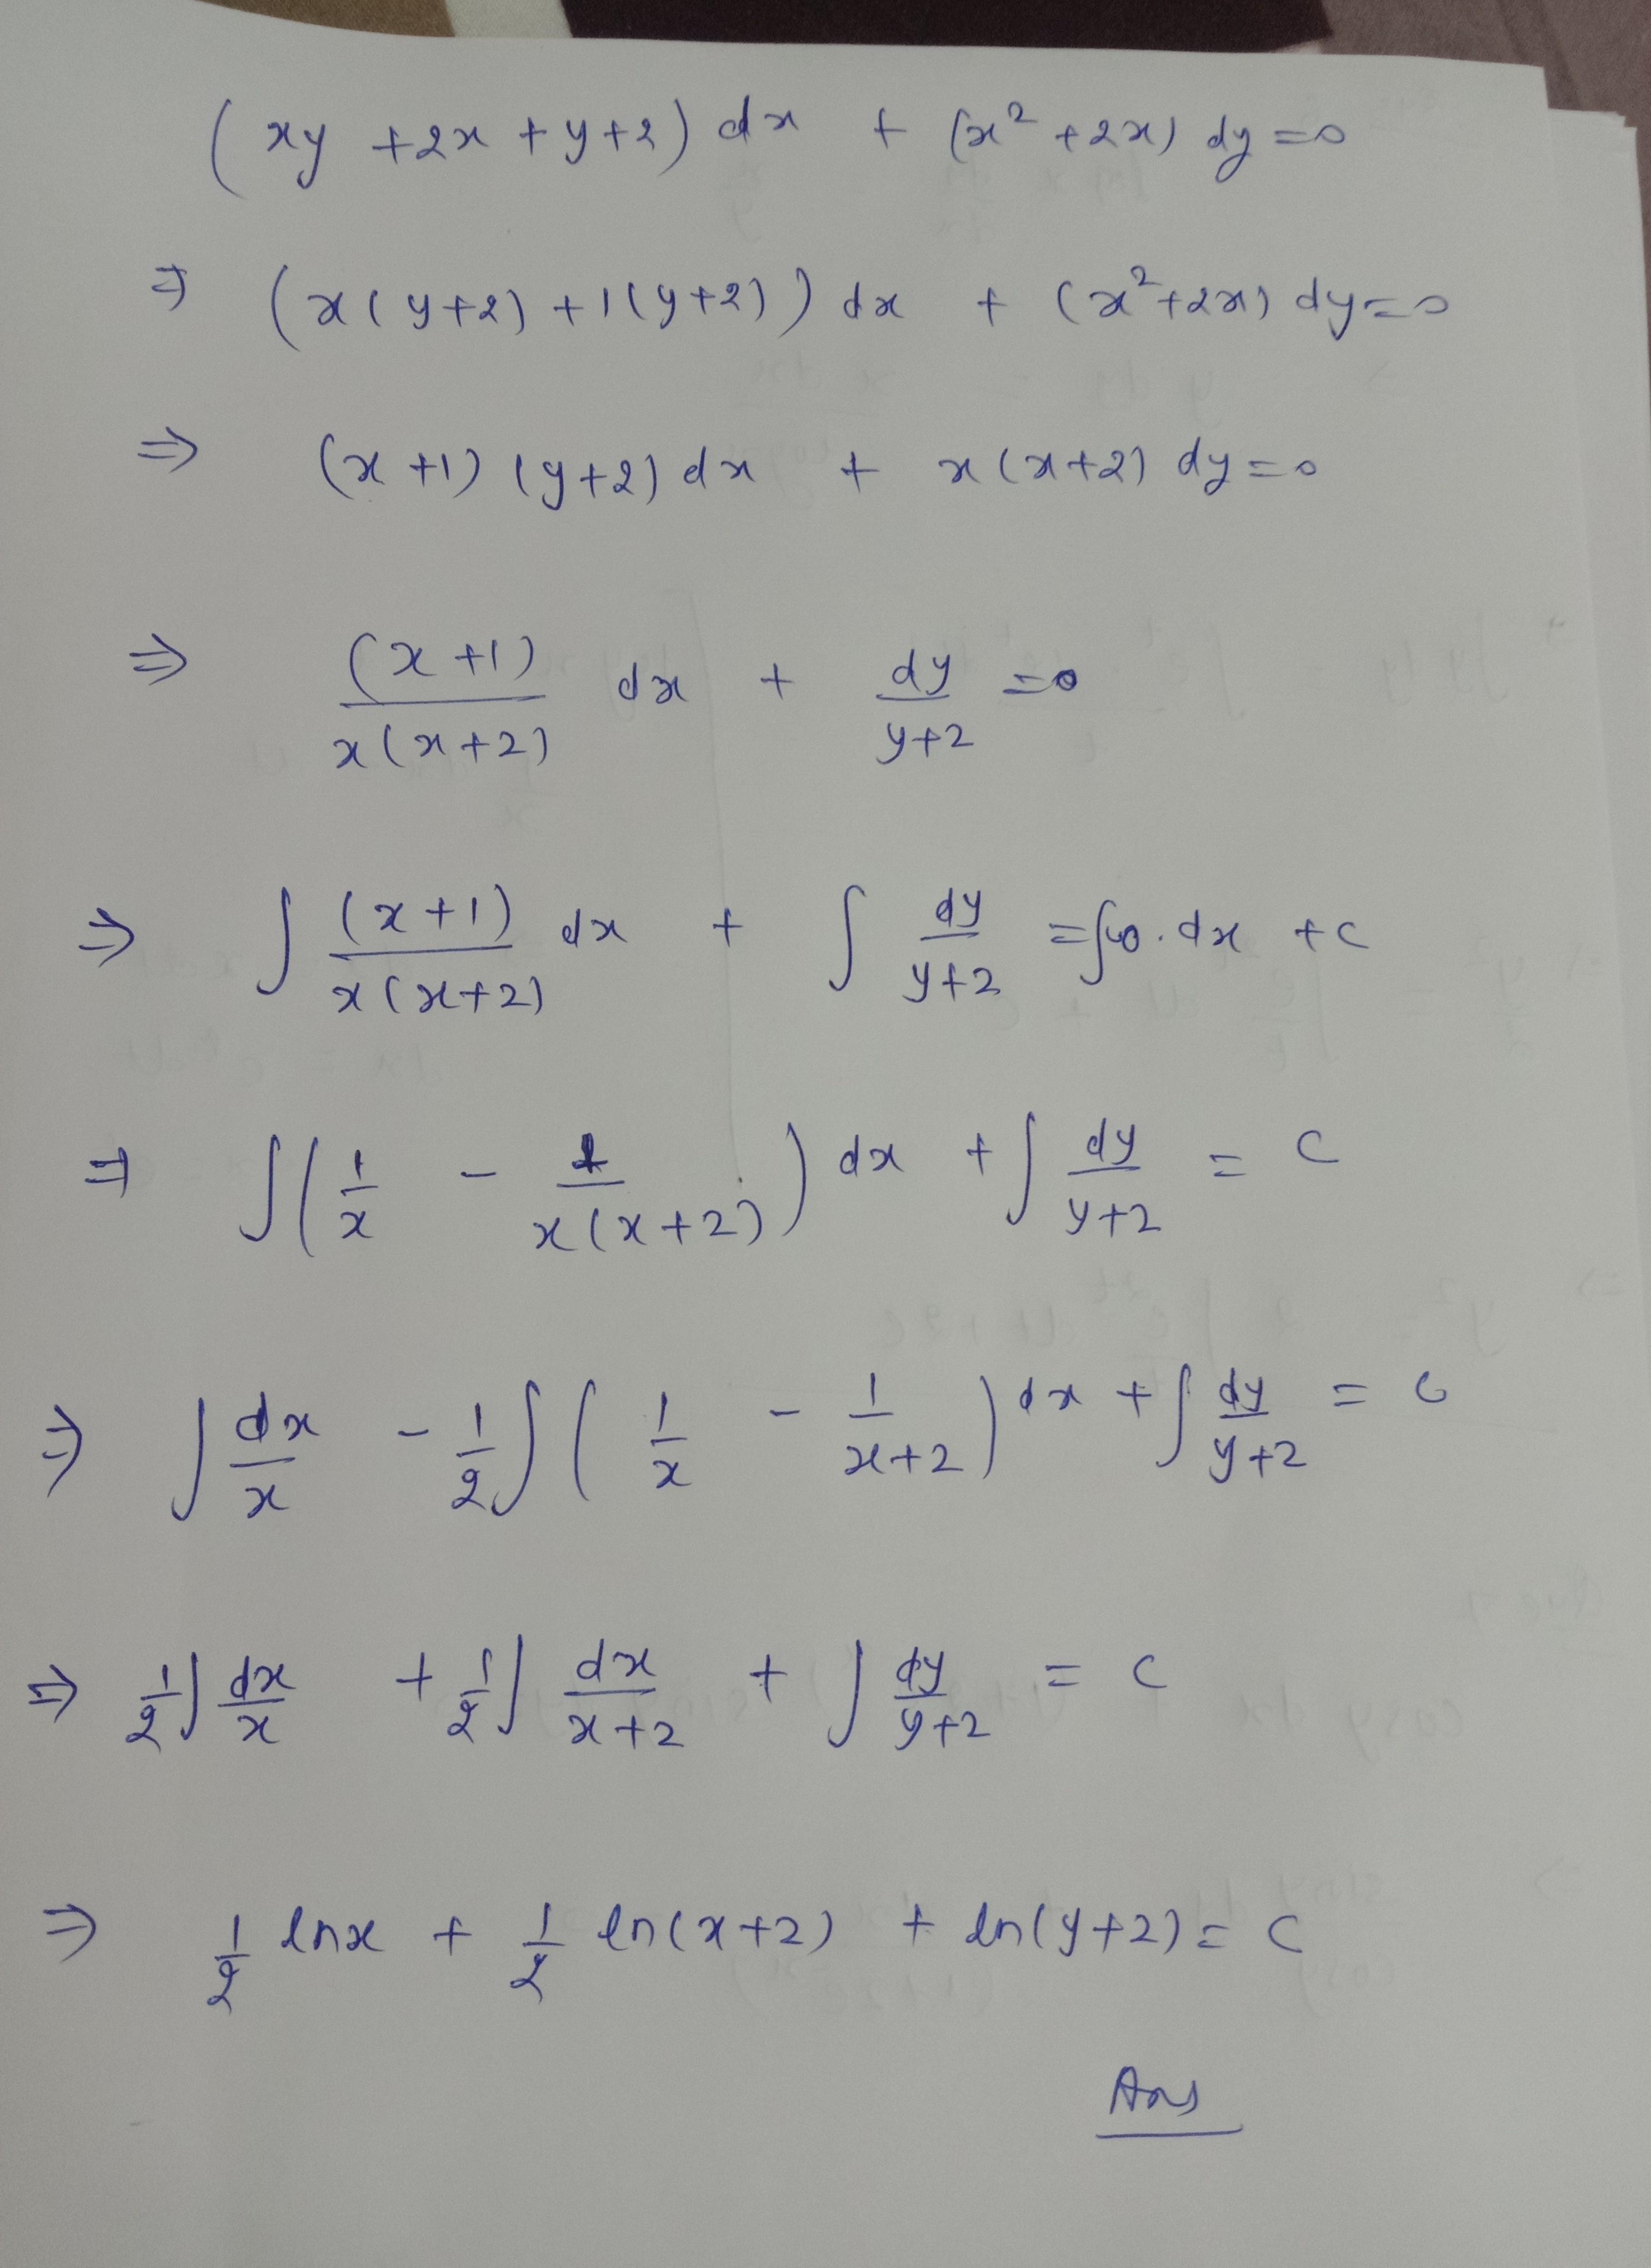 (xy + 2x + y + 2) dx + (x² + 2x) dy = 0
⇒ (x(y+2) + 1(y+2)) dx + (x² + 2x) dy = 0
⇒ (x+1) (y+2) dx + x(x+2) dy = 0
⇒ (x+1)/x(x+2) dx + dy/y+2 = 0
⇒ ∫ (x+1)/x(x+2) dx + ∫ dy/y+2 = ∫0.dx + c
⇒ ∫(1/x - 1/x(x+2)) dx + ∫ dy/y+2 = C
⇒ ∫ dx/x - 1/2 ∫(1/x - 1/x+2) dx + ∫ dy/y+2 = C
⇒ 1/2 ∫ dx/x + 1/2 ∫ dx/x+2 + ∫ dy/y+2 = C
⇒ 1/2 lnx + 1/2 ln(x+2) + ln(y+2) = C
Ans